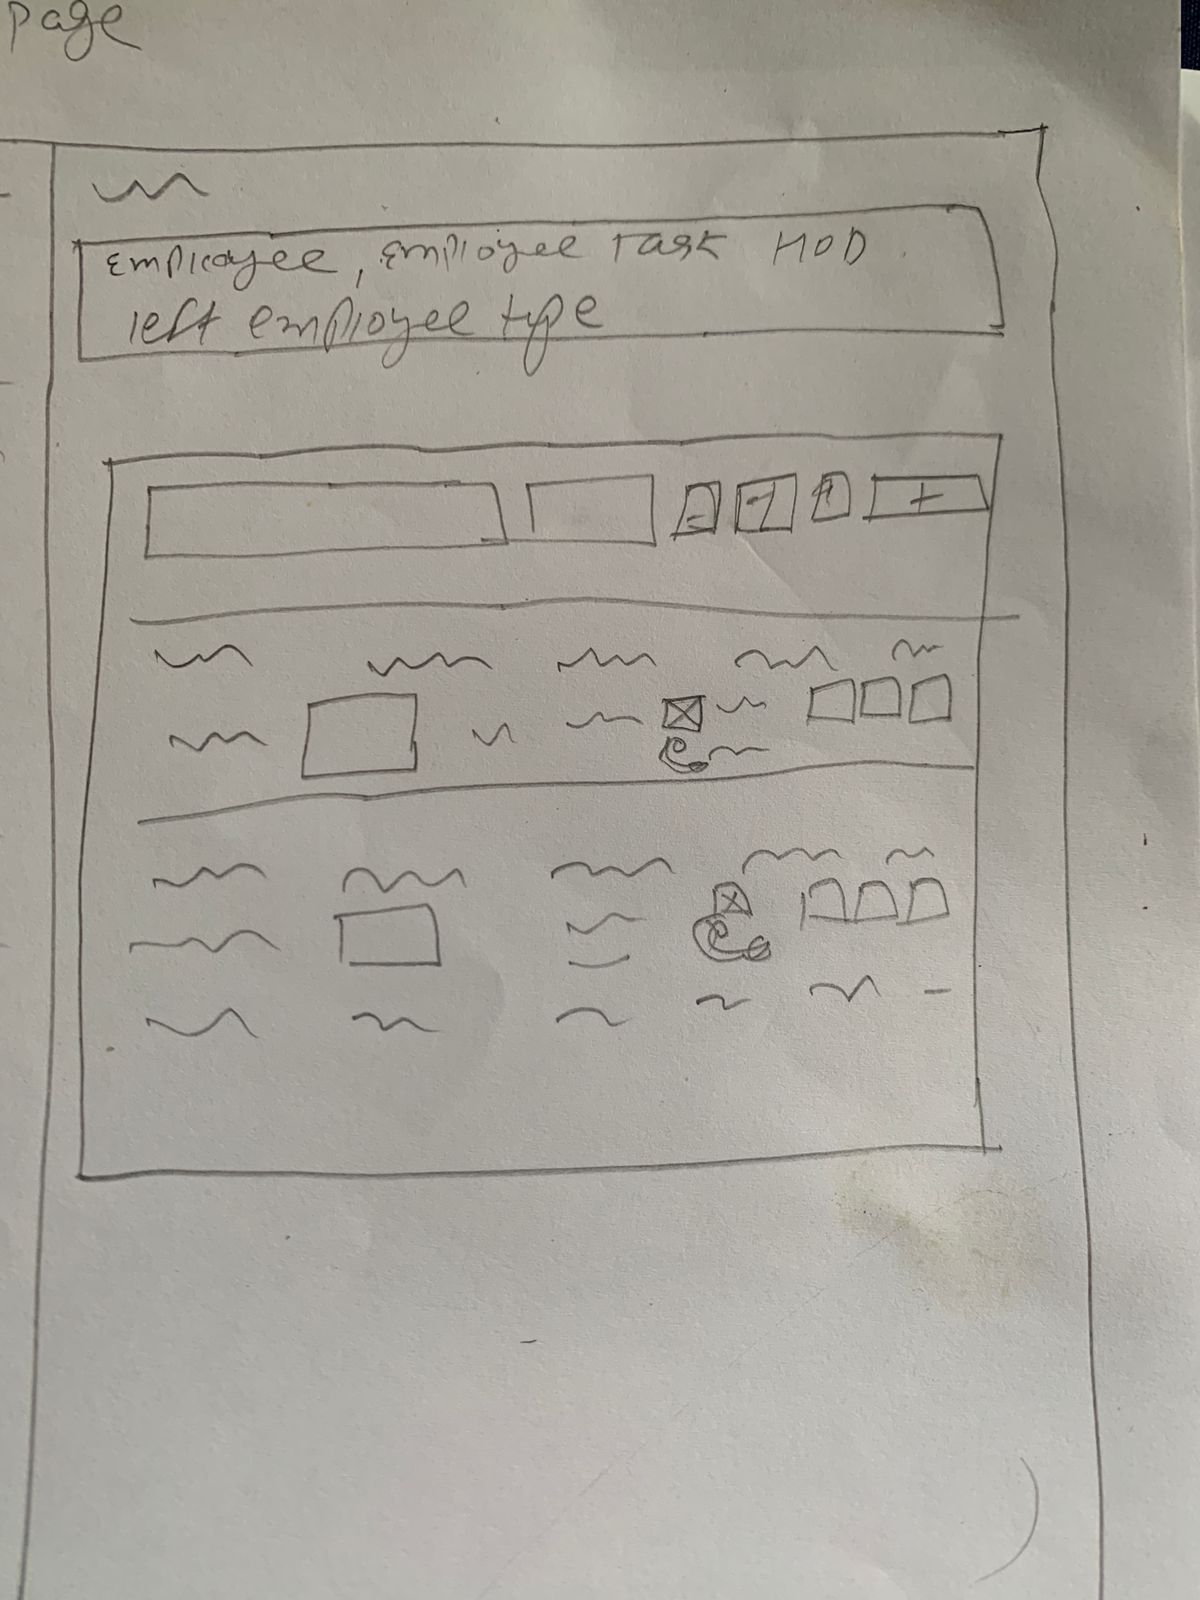 page
Employee, Employee Task HOD
left employee type